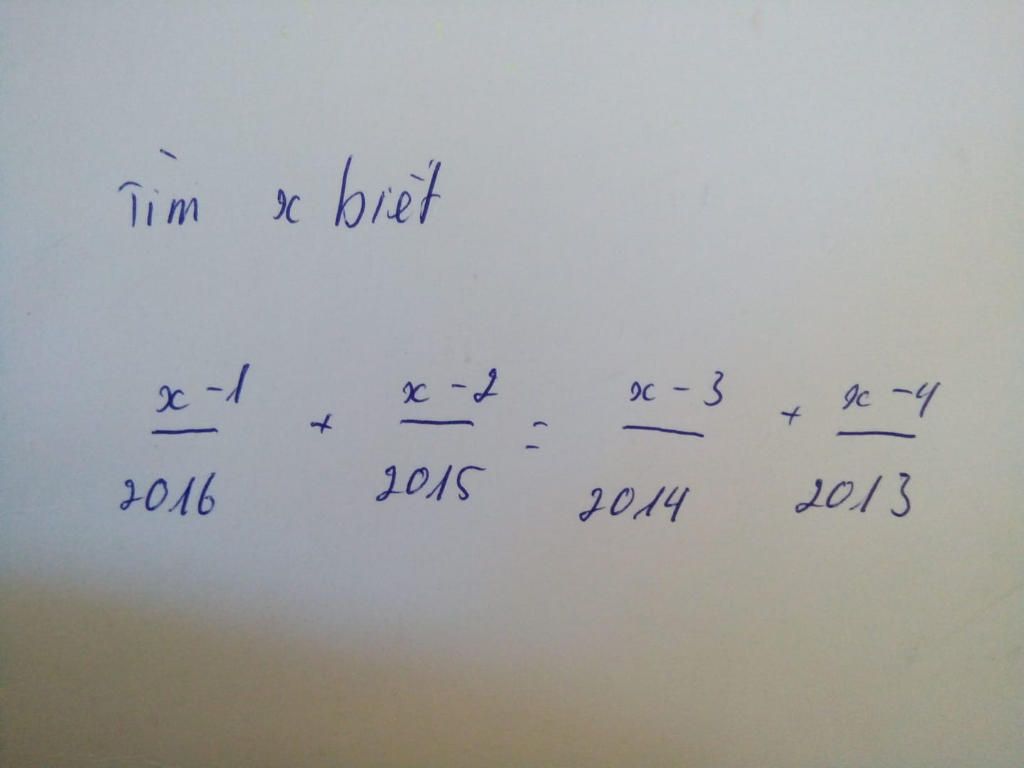 Tìm x biết
x - 1 / 2016 + x - 2 / 2015 = x - 3 / 2014 + x - 4 / 2013